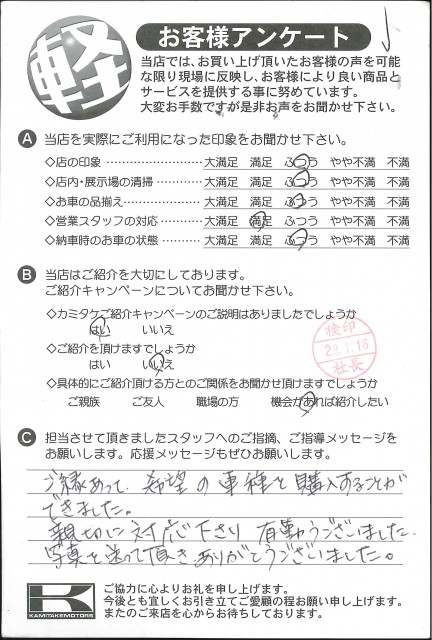 軽
お客様アンケート
当店では、お買い上げ頂いたお客様の声を可能
な限り現場に反映し、お客様により良い商品と
サービスを提供する事に努めています。
大変お手数ですが是非お声をお聞かせ下さい。
A 当店を実際にご利用になった印象をお聞かせ下さい。
◇店の印象 ………………… 大満足 満足 ふつう やや不満 不満
◇店内・展示場の清掃………… 大満足 満足 ふつう やや不満 不満
◇お車の品揃え……………… 大満足 満足 ふつう やや不満 不満
◇営業スタッフの対応………… 大満足 満足 ふつう やや不満 不満
◇納車時のお車の状態………… 大満足 満足 ふつう やや不満 不満
B 当店はご紹介を大切にしております。
ご紹介キャンペーンについてお聞かせ下さい。
◇カミタケご紹介キャンペーンのご説明はありましたでしょうか
はい いいえ
◇ご紹介を頂けますでしょうか
はい いいえ
◇具体的にご紹介頂ける方とのご関係をお聞かせ頂けますでしょうか
ご親族 ご友人 職場の方 機会があれば紹介したい
検印
28.1.16
社長
C 担当させて頂きましたスタッフへのご指摘、ご指導メッセージを
お願いします。応援メッセージもぜひお願いします。
ご縁あって、希望の車種を購入することが
できました。
親切に対応下さり 有難うございました。
写真を送って頂きありがとうございました。
K
KAMITAKEMOTORS
ご協力に心よりお礼を申し上げます。
今後とも宜しくお引き立てご愛顧の程お願い申し上げます。
またのご来店を心からお待ちしております。